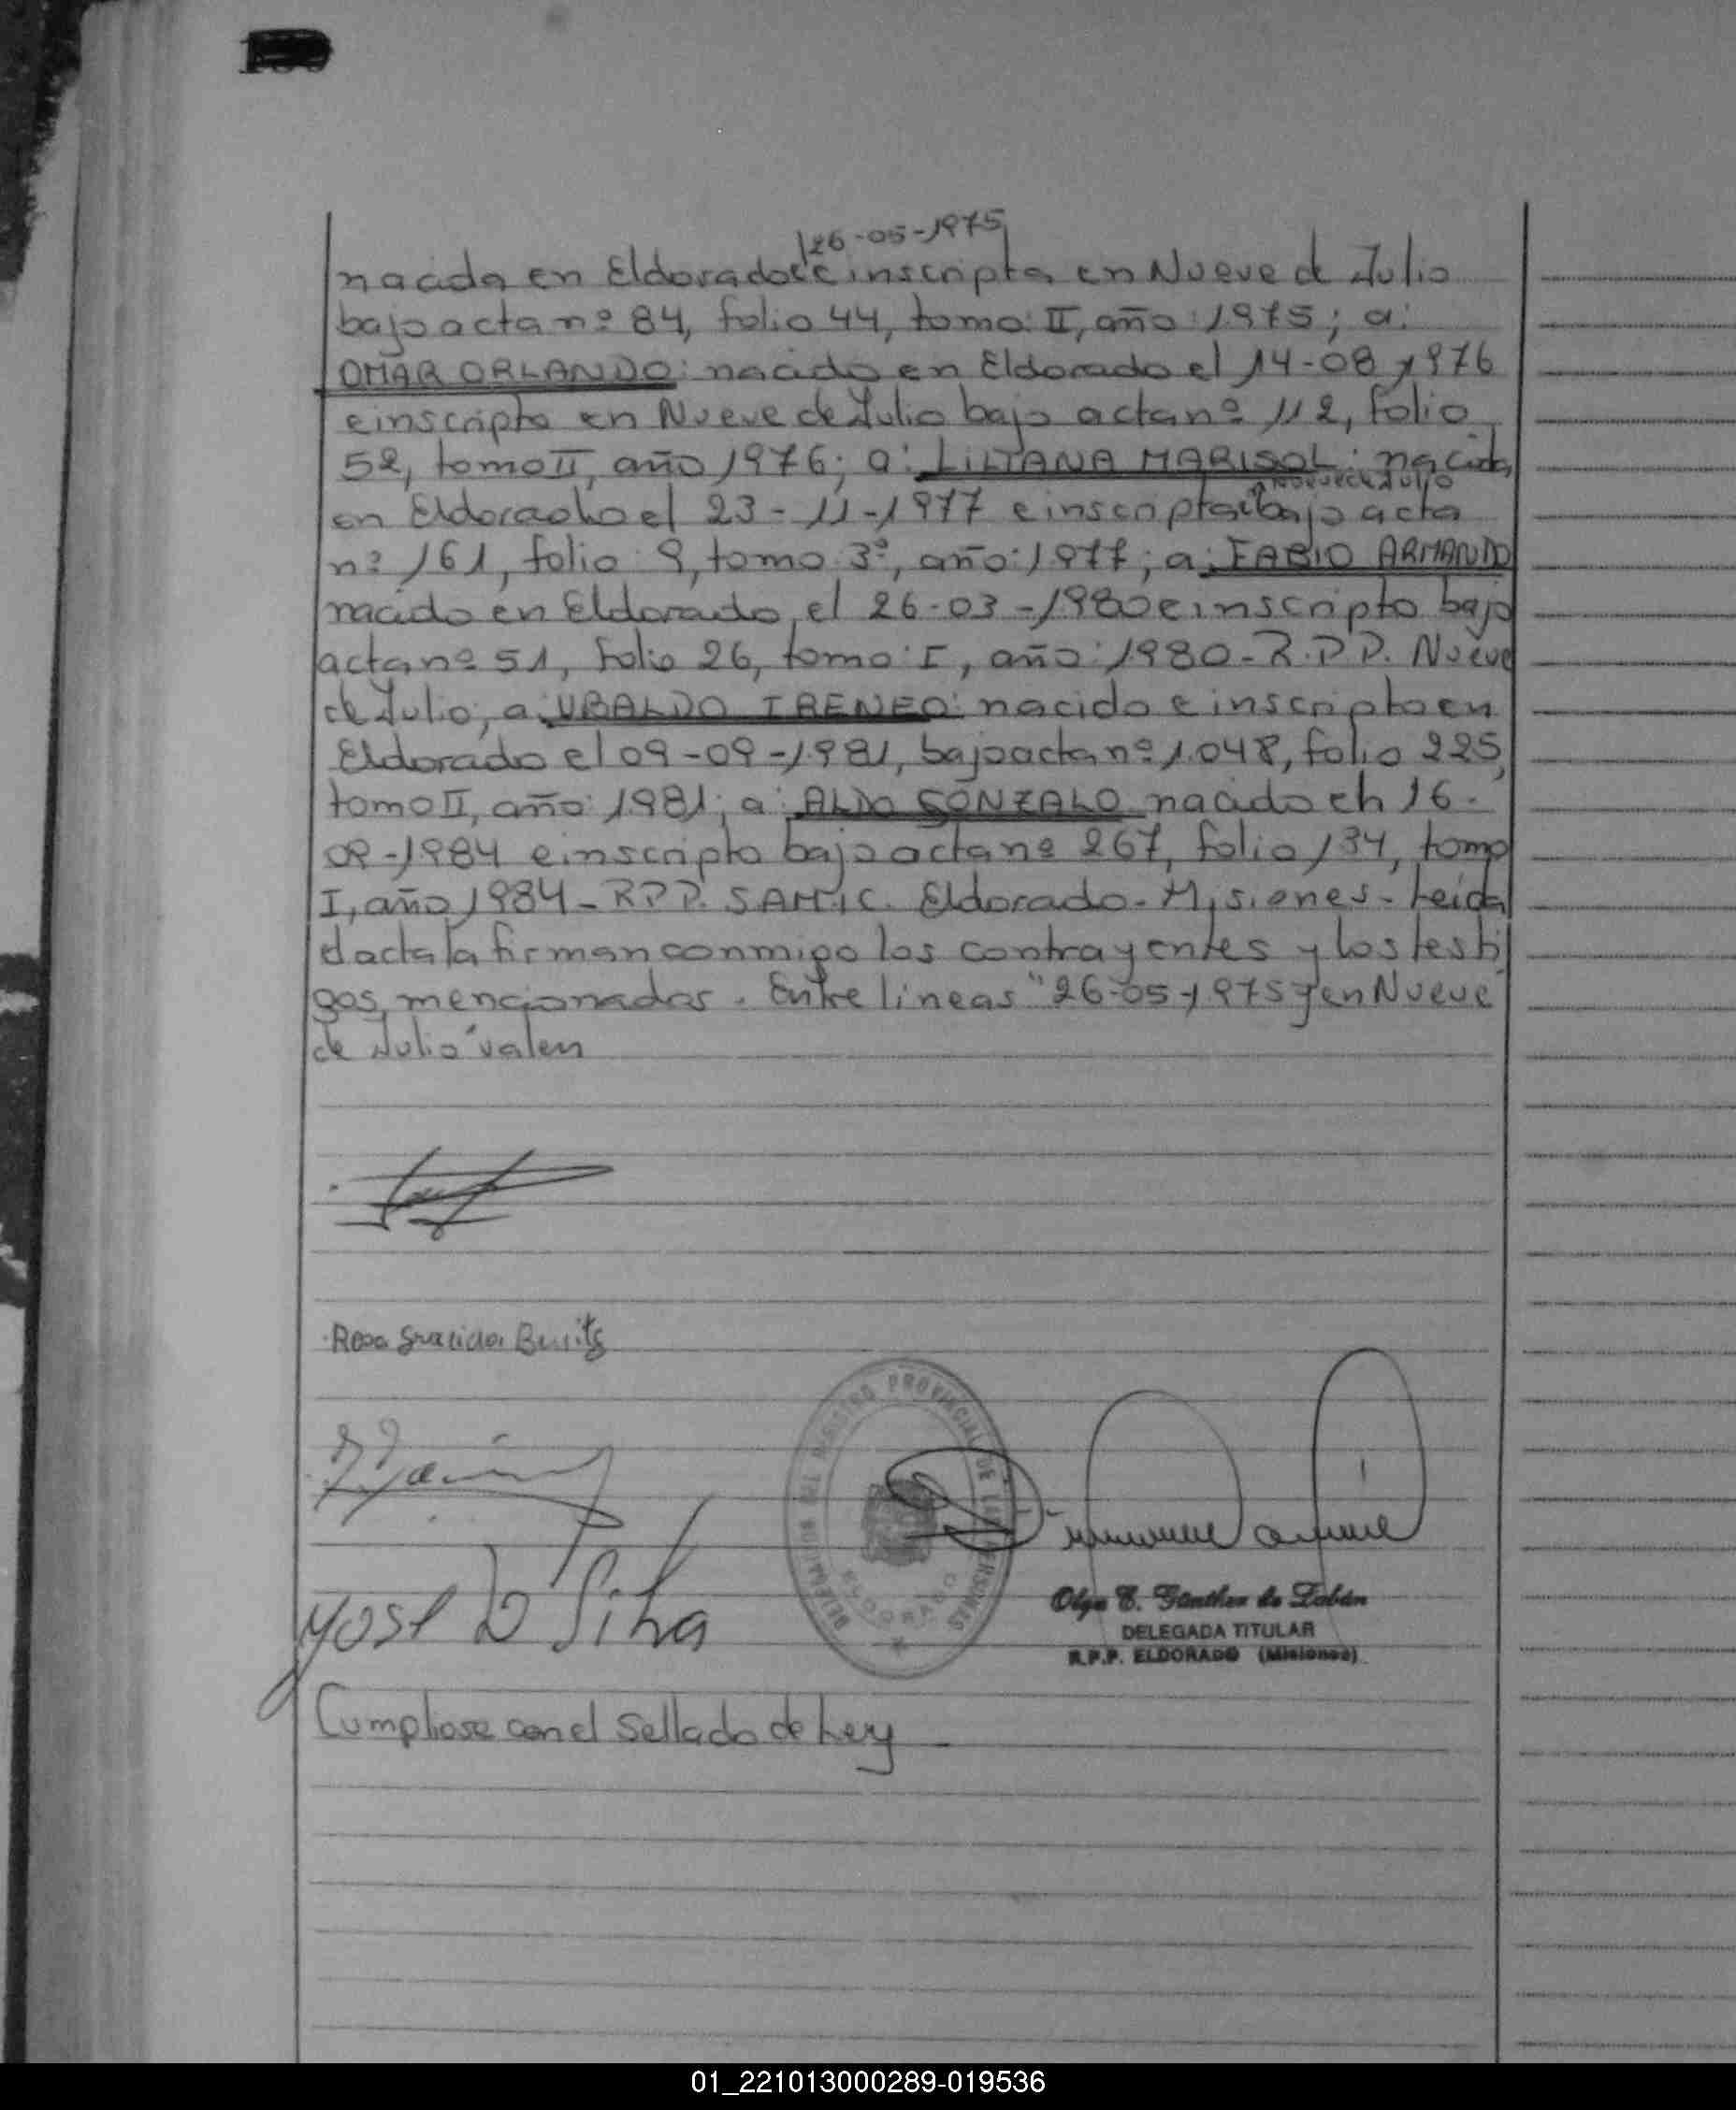 26-05-1975
nacida en Eldorado el e inscripta en Nueve de Julio
bajo acta nº 84, folio 44, tomo: II, año: 1975; a:
OMAR ORLANDO: nacido en Eldorado el 14-08-1976
e inscripto en Nueve de Julio bajo acta nº 112, folio
52, tomo II, año 1976; a: LILIANA MARISOL: nacida
en Nueve de Julio
en Eldorado el 23-11-1977 e inscripta bajo acta
nº 161, folio: 9, tomo 3º, año: 1977; a: FABIO ARMANDO
nacido en Eldorado, el 26-03-1980 e inscripto bajo
acta nº 51, folio 26, tomo: I, año: 1980-R.P.P. Nueve
de Julio; a: UBALDO IRENEO: nacido e inscripto en
Eldorado el 09-09-1981, bajo acta nº 1.048, folio 225,
tomo II, año: 1981; a: ALDO GONZALO nacido el 16-
-1984 e inscripto bajo acta nº 267, folio 134, tomo
I, año 1984-RPP. S.A.M.I.C. Eldorado-Misiones-Leída
el acta la firman conmigo los contrayentes y los testi
gos mencionados. Entre lineas "26-05-1975 y en Nueve
de Julio" valen
Rosa Graciela Benitz
José D Silva
DELEGACION DEL REGISTRO PROVINCIAL DE LAS PERSONAS
ELDORADO
Olga E. Günther de Labán
DELEGADA TITULAR
R.P.P. ELDORADO (Misiones)
Cumpliose con el sellado de Ley
01_221013000289-019536